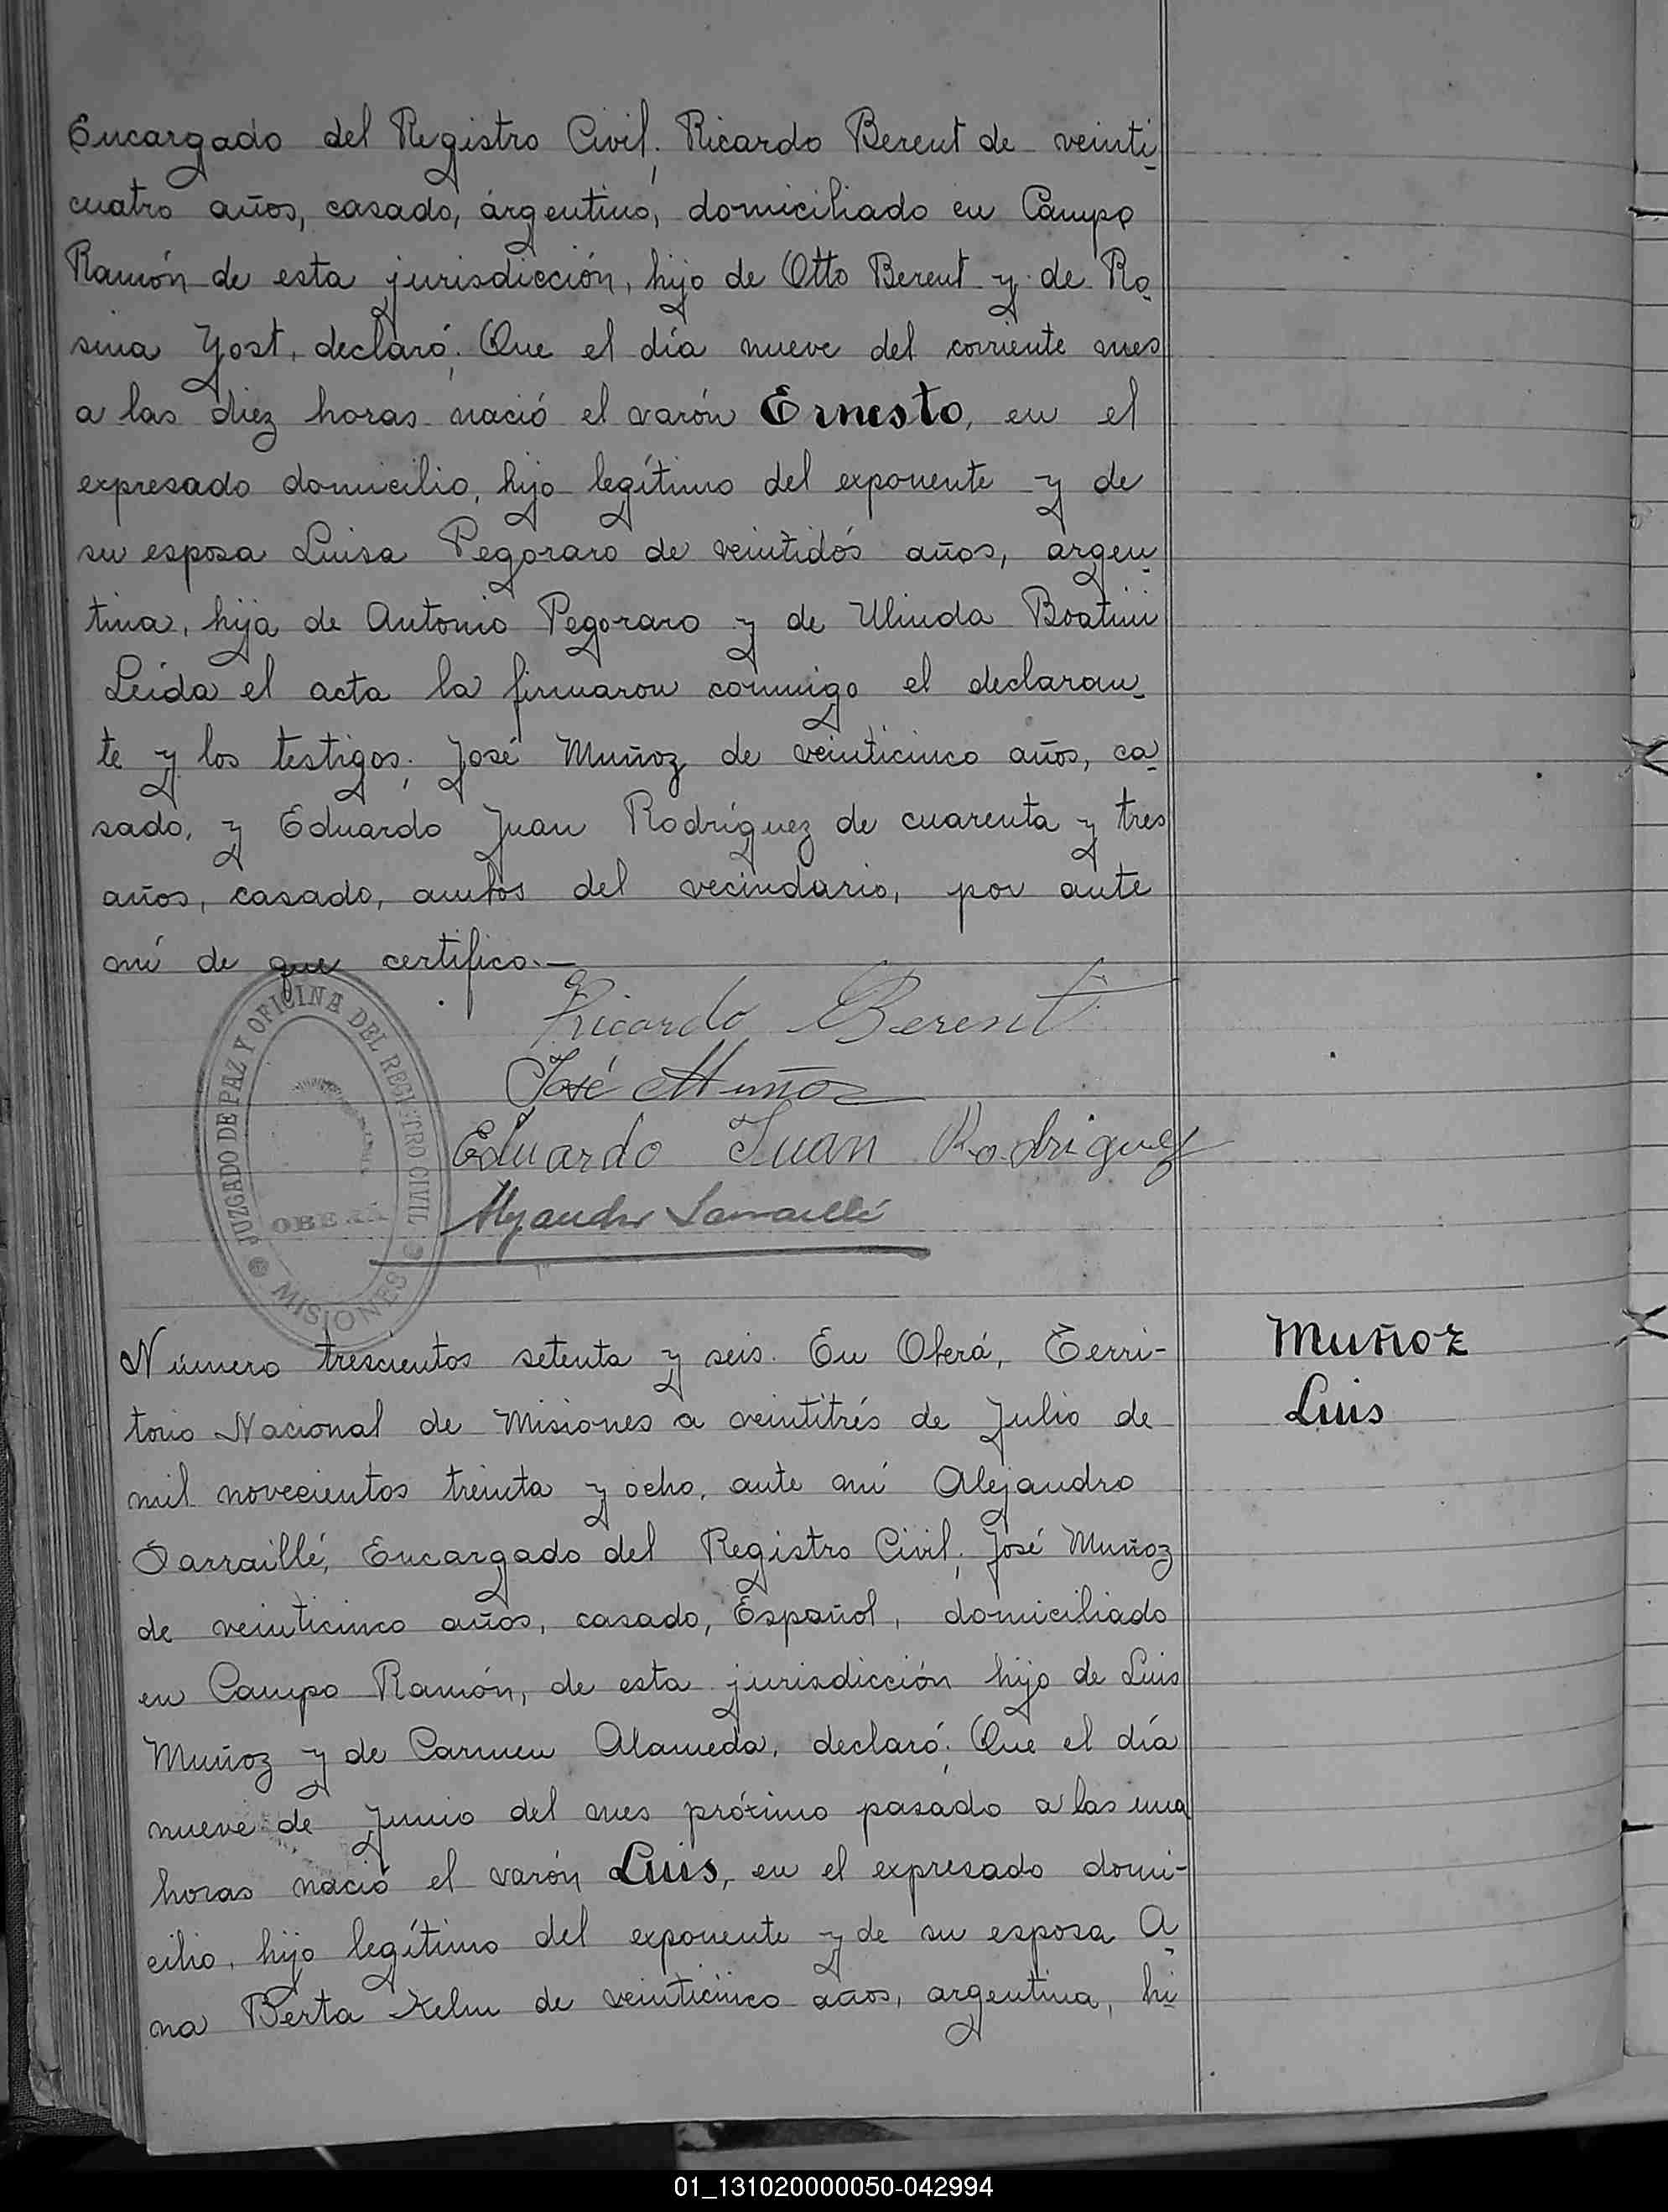 Encargado del Registro Civil; Ricardo Berent de veinti-
cuatro años, casado, argentino, domiciliado en Campo
Ramón de esta jurisdicción, hijo de Otto Berent y de Ro-
sina Yost, declaró; Que el día nueve del corriente mes
a las diez horas nació el varón Ernesto, en el
expresado domicilio, hijo legítimo del exponente y de
su esposa Luisa Pegoraro de veintidós años, argen-
tina, hija de Antonio Pegoraro y de Ulinda Boatini
Leida el acta la firmaron conmigo el declaran-
te y los testigos; José Muñoz de veinticinco años, ca-
sado, y Eduardo Juan Rodríguez de cuarenta y tres
años, casado, ambos del vecindario, por ante
mí de que certifico.—
Ricardo Berent
José Muñoz
Eduardo Juan Rodriguez
Alejandro Sarraillé
JUZGADO DE PAZ Y OFICINA DEL REGISTRO CIVIL
OBERÁ
MISIONES
Muñoz
Luis
Número trescientos setenta y seis. En Oberá, Terri-
torio Nacional de Misiones a veintitrés de Julio de
mil novecientos treinta y ocho, ante mí Alejandro
Sarraillé, Encargado del Registro Civil; José Muñoz
de veinticinco años, casado, Español, domiciliado
en Campo Ramón, de esta jurisdicción hijo de Luis
Muñoz y de Carmen Alameda, declaró; Que el día
nueve de Junio del mes próximo pasado a las una
horas nació el varón Luis, en el expresado domi-
cilio, hijo legítimo del exponente y de su esposa A-
na Berta Kelm de veinticinco años, argentina, hi-
01_131020000050-042994